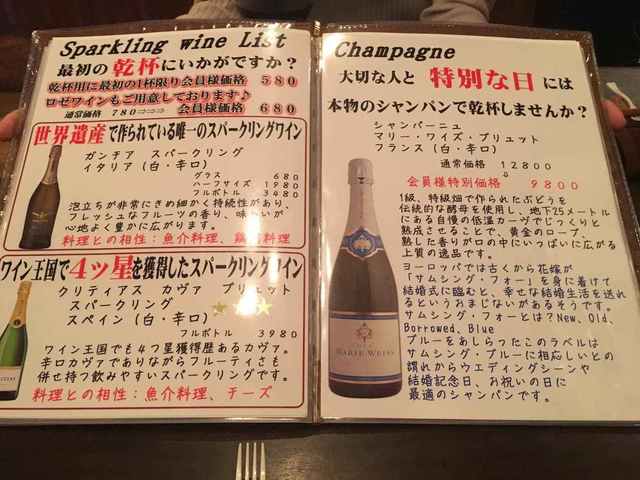 Sparkling wine List
最初の 乾杯にいかがですか？
乾杯用に最初の1杯限り会員様価格 580
ロゼワインもご用意しております♪
通常価格 780⇒⇒⇒ 会員様価格 680
世界遺産で作られている唯一のスパークリングワイン
ガンチア スパークリング
イタリア（白・辛口）
グラス 680
ハーフサイズ 1980
フルボトル 3480
泡立ちが非常にきめ細かく持続性があり、
フレッシュなフルーツの香り、味わいが
心地よく豊かに広がります。
料理との相性：魚介料理、鶏料理
ワイン王国で4ツ星を獲得したスパークリングワイン
クリティアス カヴァ ブリュット
スパークリング
スペイン（白・辛口）
フルボトル 3980
ワイン王国でも4つ星獲得歴あるカヴァ。
辛口カヴァでありながらフルーティさも
併せ持つ飲みやすいスパークリングです。
料理との相性：魚介料理、チーズ
Champagne
大切な人と 特別な日には
本物のシャンパンで乾杯しませんか？
シャンパーニュ
マリー・ワイズ・ブリュット
フランス（白・辛口）
通常価格 12800
⇩
会員様特別価格 9800
1級、特級畑で作られたぶどうを
伝統的な酵母を使用し、地下25メートル
にある自慢の低温カーヴでじっくりと
熟成させることで、黄金のローブ、
熟した香りが口の中にいっぱいに広がる
上質の逸品です。
ヨーロッパでは古くから花嫁が
「サムシング・フォー」を身に着けて
結婚式に臨むと、幸せな結婚生活を送れ
るというおまじないがあるそうです。
サムシング・フォーとは？New, Old,
Borrowed, Blue
ブルーをあしらったこのラベルは
サムシング・ブルーに相応しいとの
謂れからウエディングシーンや
結婚記念日、お祝いの日に
最適のシャンパンです。
MARIE WEISS